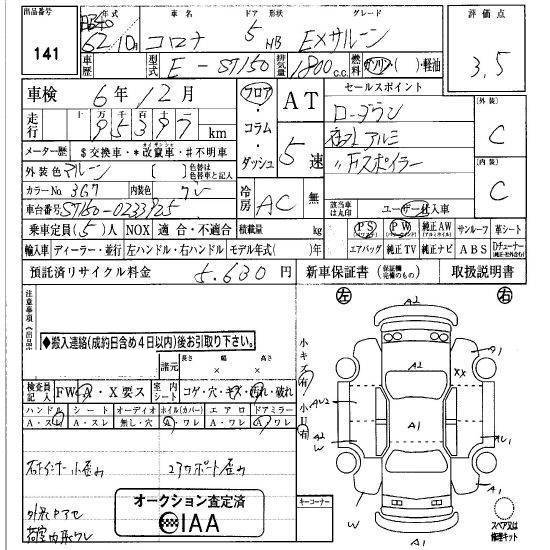 出品番号
141
昭和 年式
62/10月
車名
コロナ
ドア 形状
5 HB
グレード
EXサルーン
評価点
3.5
車歴
型式
E-ST150
排気量
1800 c.c.
燃料
ガソリン( )・軽油
車検 6年12月
フロア・コラム・ダッシュ
AT
5速
セールスポイント
走行
十 万 千 百 十
95397 km
社外アルミ
〃Fスポイラー
外装
C
内装
C
メーター歴
$交換車・*改竄車・#不明車
外装色 マルーン
( )
色替は色替車と記入
カラーNo. 3G7
内装色 グレー
冷房 AC
無
該当車は丸印
ユーザー仕入車
車台番号 ST150-0233925
乗車定員(5)人
NOX 適合・不適合
積載量 kg
PS PW 純正AW サンルーフ 革シート
輸入車 ディーラー・並行
左ハンドル・右ハンドル
モデル年式( )年
エアバッグ 純正TV 純正ナビ ABS Dチューナー
預託済リサイクル料金 5,630円
新車保証書(保証欄完備のもの)
取扱説明書
注意事項
◆搬入連絡(成約日含め4日以内)後お引取り下さい。
諸元
長さ × 幅 × 高さ
検査員記入
FW A・X要ス
室内シート
コゲ・穴・キズ・汚れ・破れ
ハンドル シート オーディオ ホイル(カバー) エアロ ドアミラー
A・スレ A・スレ 無し・穴 A・ワレ A・ワレ A・ワレ
小キズ 有
小U 有
左
右
A2
A2
A1
XX
AU2
A1
A2
W
AU1
W
A1
A2
キーコーナー
オークション査定済
IAA
スペア又は修理キット